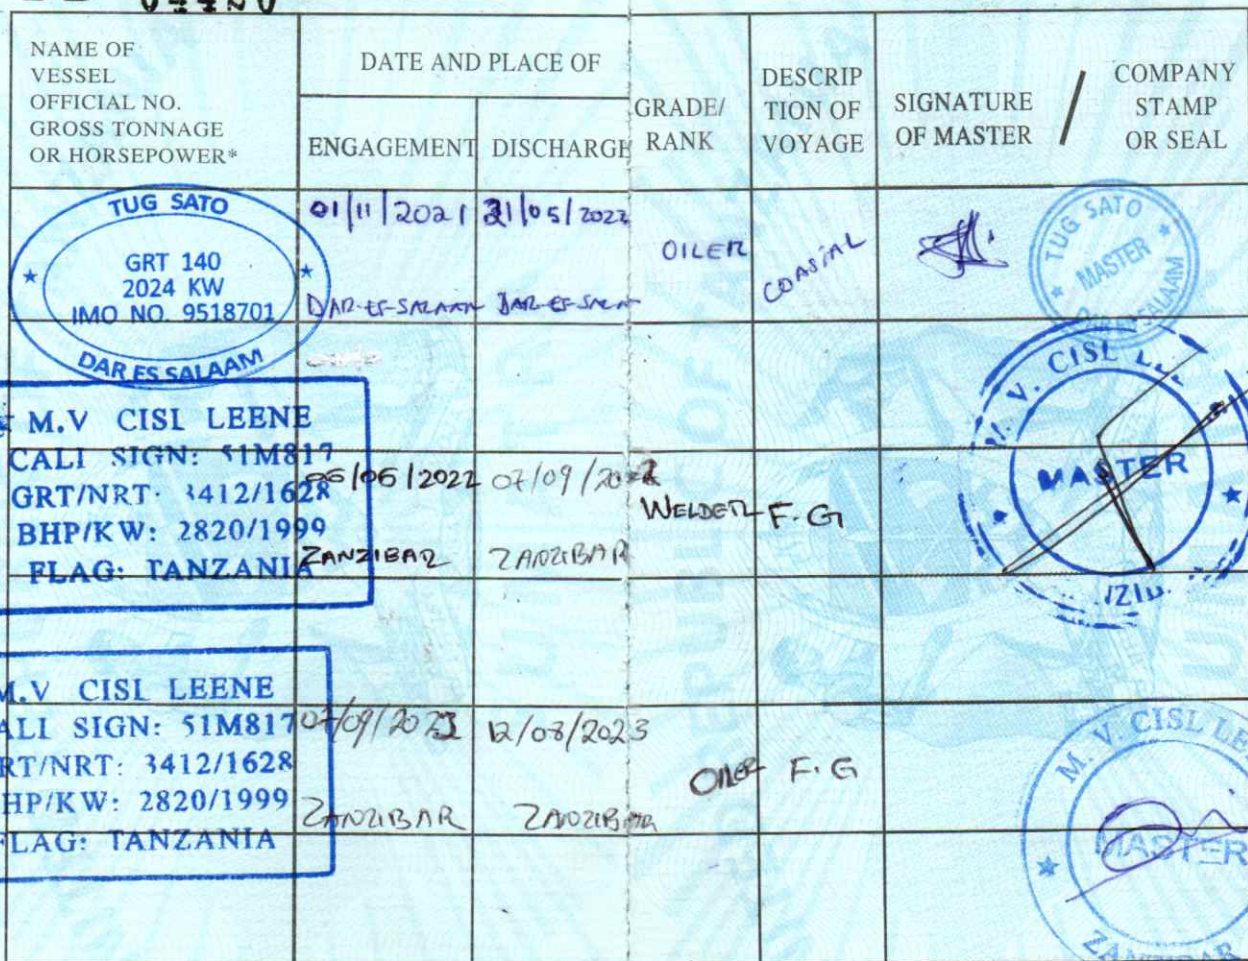 04420
NAME OF
VESSEL
OFFICIAL NO.
GROSS TONNAGE
OR HORSEPOWER*
DATE AND PLACE OF
ENGAGEMENT
DISCHARGE
GRADE/
RANK
DESCRIP
TION OF
VOYAGE
SIGNATURE
OF MASTER
/
COMPANY
STAMP
OR SEAL
TUG SATO
GRT 140
2024 KW
IMO NO. 9518701
DAR ES SALAAM
01/11/2021
31/05/2022
DAR-ES-SALAAM
DAR-ES-SALAM
OILER
COASTAL
TUG SATO
MASTER
DAR ES SALAAM
M.V CISL LEENE
CALL SIGN: 51M817
GRT/NRT: 3412/1628
BHP/KW: 2820/1999
FLAG: TANZANIA
06/06/2022
07/09/2022
ZANZIBAR
ZANZIBAR
WELDER
F.G
M. V. CISL
MASTER
M.V CISL LEENE
ALL SIGN: 51M817
RT/NRT: 3412/1628
HP/KW: 2820/1999
FLAG: TANZANIA
12/08/2023
ZANZIBAR
ZANZIBAR
OILER
F.G
M. V. CISL LE
MASTER
ZANZIBAR
REPUBLIC OF